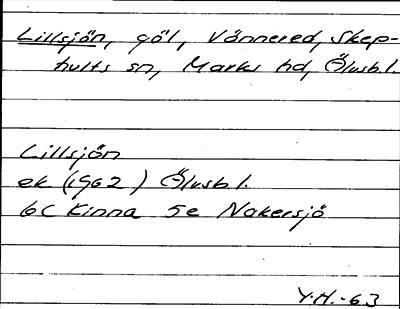 Lillsjön, göl, Vånnered, Skep-
hults sn, Marks hd, Älvsb.l.
Lillsjön
ek (1962) Älvsb.l.
6C Kinna 5e Nakersjö
Y.H.-63